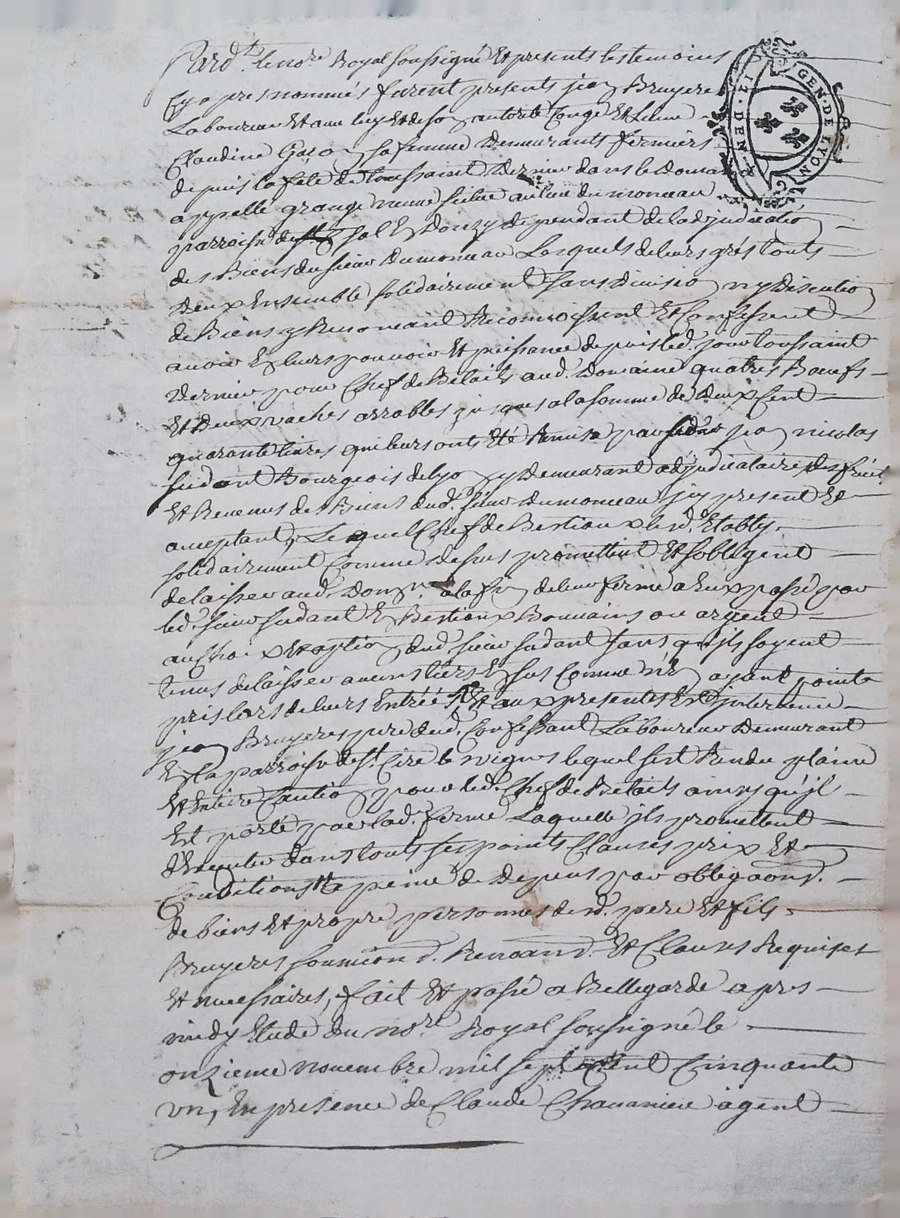 Pard.t le no.re Royal soussigné Et presents les temoins
Cy apres nommés furent presents jean Bruyere
Laboureur Et avec luy Et de son autorité Congé Et Licence
Claudine Gaco sa femme Demeurants fermiers
depuis la fete de toussaint Dernier dans le Domaine
appellé grange neuve scitué au lieu du monceau
parroisse de Sal En Donzy dependant de l'adjudication
des Biens du sieur Dumonceau Lesquels de leurs grés touts
Deux Ensemble solidairement sans Division ny Discution
de Biens y Renonceant Reconnoissent Et Confessent
avoir En leurs pouvoir Et puissance depuis led. jour toussaint
Dernier pour Chef de Betails aud. Domaine quatres Boeufs
Et Deux vaches arrables jusques a la somme de Deux Cent
quarante livres qui leurs onts Eté Remise par sieur jean nicolas
sudant Bourgeois de Lyon y Demeurant adjudicataire des fruits
Et Revenus des Biens dud. sieur Dumonceau jcy present Et
acceptant, Lequel Chef de Bestiaux les d. Etably
solidairement Comme dessus promettent Et s'obligent
de laisser aud. Domaine a la fin de leur ferme a Eux passé par
led. sieur sudant En Bestiaux Bonnains ou argent
au Choix Et option dud. sieur sudant sans qu'ils soyent
tenus de laisser aucun tiers En sus Comme n'En ayant point
pris lors de leurs Entrée Et aux presentes Est jntervenu
jean Bruyeres pere dud. Confessant Laboureur Demeurant
En la parroisse de St. Cire les vignes lequel s'est Rendu plaine
Et Entiere Caution pour led. Chef de Betails ainsy qu'jl
Est porté par lad. ferme Laquelle jls promettent
d'Executer dans touts ses points Clauses prix Et
Conditions a peine de Depens par obligaons.
de biens Et propre personnes desd. pere Et fils
Bruyeres soumiond. Renoand. Et Clauses Requises
Et necessaires, fait Et passé a Bellegarde apres
midy Etude du no.re Royal soussigné le
onzieme novembre mil sept Cent Cinquante
un, En presence de Claude Chavanieu agent
GEN · DE LYON
DEN · LI